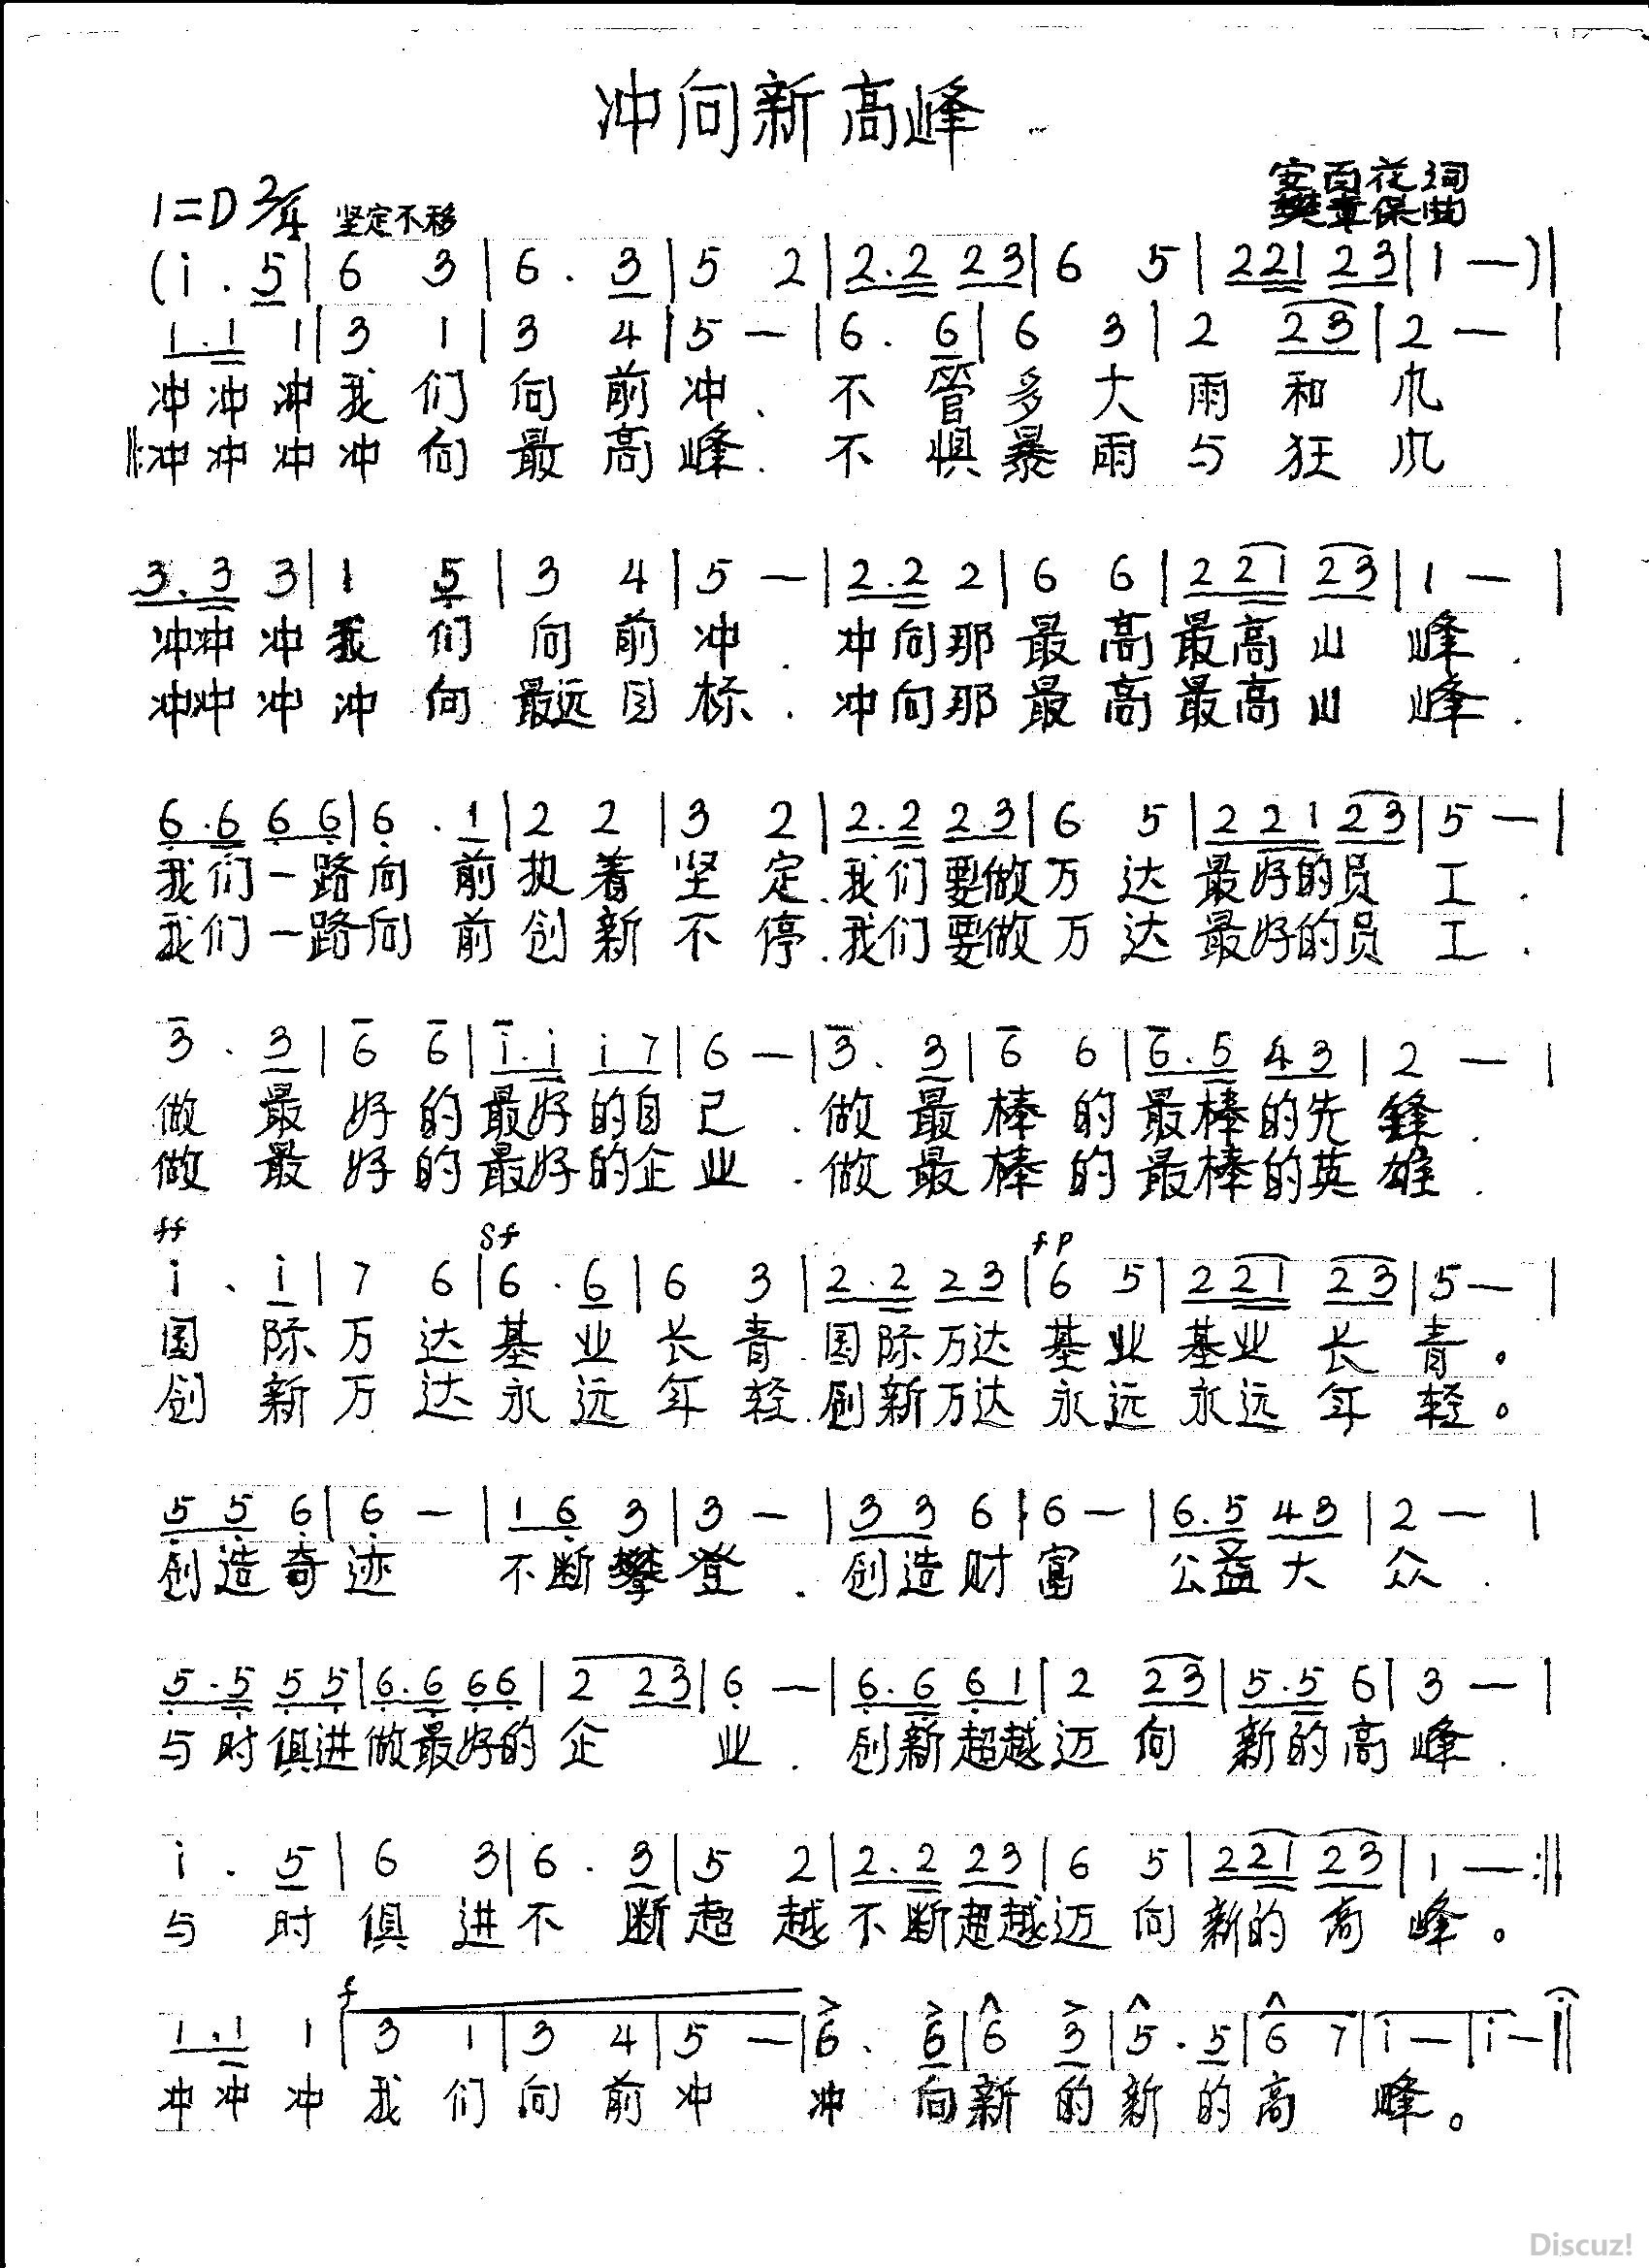 冲向新高峰
安百花词
1=D 2/4 坚定不移
樊章保曲
(i . 5 | 6 3 | 6 . 3 | 5 2 | 2 . 2 2 3 | 6 5 | 2 2 1 2 3 | 1 — ) |
1 . 1 1 | 3 1 | 3 4 | 5 — | 6 . 6 | 6 3 | 2 2 3 | 2 — |
冲冲冲我们向前冲、不管多大雨和风
‖:冲冲冲冲向最高峰. 不惧暴雨与狂风
3 . 3 3 | 1 5 | 3 4 | 5 — | 2 . 2 2 | 6 6 | 2 2 1 2 3 | 1 — |
冲冲冲我们向前冲. 冲向那最高最高山峰.
冲冲冲冲向最远目标. 冲向那最高最高山峰.
6 . 6 6 6 | 6 . 1 | 2 2 | 3 2 | 2 . 2 2 3 | 6 5 | 2 2 1 2 3 | 5 — |
我们一路向前执着坚定.我们要做万达最好的员工.
我们一路向前创新不停.我们要做万达最好的员工.
3 . 3 | 6 6 | i . i i 7 | 6 — | 3 . 3 | 6 6 | 6 . 5 4 3 | 2 — |
做最好的最好的自己. 做最棒的最棒的先锋.
做最好的最好的企业. 做最棒的最棒的英雄.
ff sf fp
i . i | 7 6 | 6 . 6 | 6 3 | 2 . 2 2 3 | 6 5 | 2 2 1 2 3 | 5 — |
国际万达基业长青.国际万达基业基业长青。
创新万达永远年轻.创新万达永远永远年轻。
5 5 6 | 6 — | 1 6 3 | 3 — | 3 3 6 | 6 — | 6 . 5 4 3 | 2 — |
创造奇迹 不断攀登. 创造财富 公益大众.
5 . 5 5 5 | 6 . 6 6 6 | 2 2 3 | 6 — | 6 . 6 6 1 | 2 2 3 | 5 . 5 6 | 3 — |
与时俱进做最好的企业. 创新超越迈向新的高峰.
i . 5 | 6 3 | 6 . 3 | 5 2 | 2 . 2 2 3 | 6 5 | 2 2 1 2 3 | 1 — :‖
与时俱进不断超越不断超越迈向新的高峰。
f
1 . 1 1 | 3 1 | 3 4 | 5 — | 6 . 6 | 6 3 | 5 . 5 | 6 7 | i — | i — ‖
冲冲冲我们向前冲 冲向新的新的高峰。
Discuz!